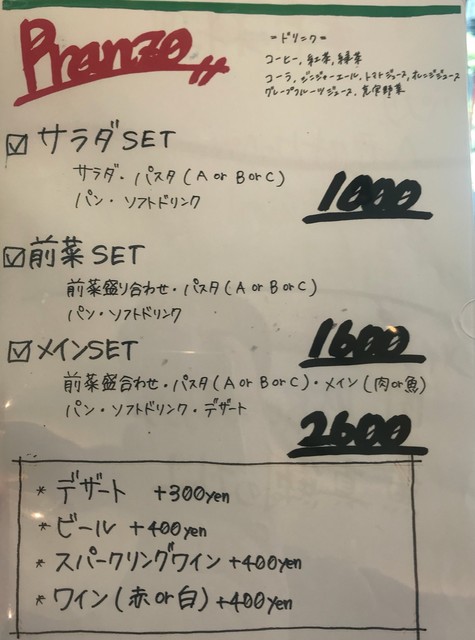 Pranzo
=ドリンク=
コーヒー, 紅茶, 緑茶
コーラ, ジンジャーエール, トマトジュース, オレンジジュース
グレープフルーツジュース,
サラダSET
サラダ・パスタ(A or B or C)
パン・ソフトドリンク
1000
前菜SET
前菜盛り合わせ・パスタ(A or B or C)
パン・ソフトドリンク
1600
メインSET
前菜盛合わせ・パスタ(A or B or C)・メイン(肉or魚)
パン・ソフトドリンク・デザート
2600
* デザート +300yen
* ビール +400yen
* スパークリングワイン +400yen
* ワイン(赤or白) +400yen